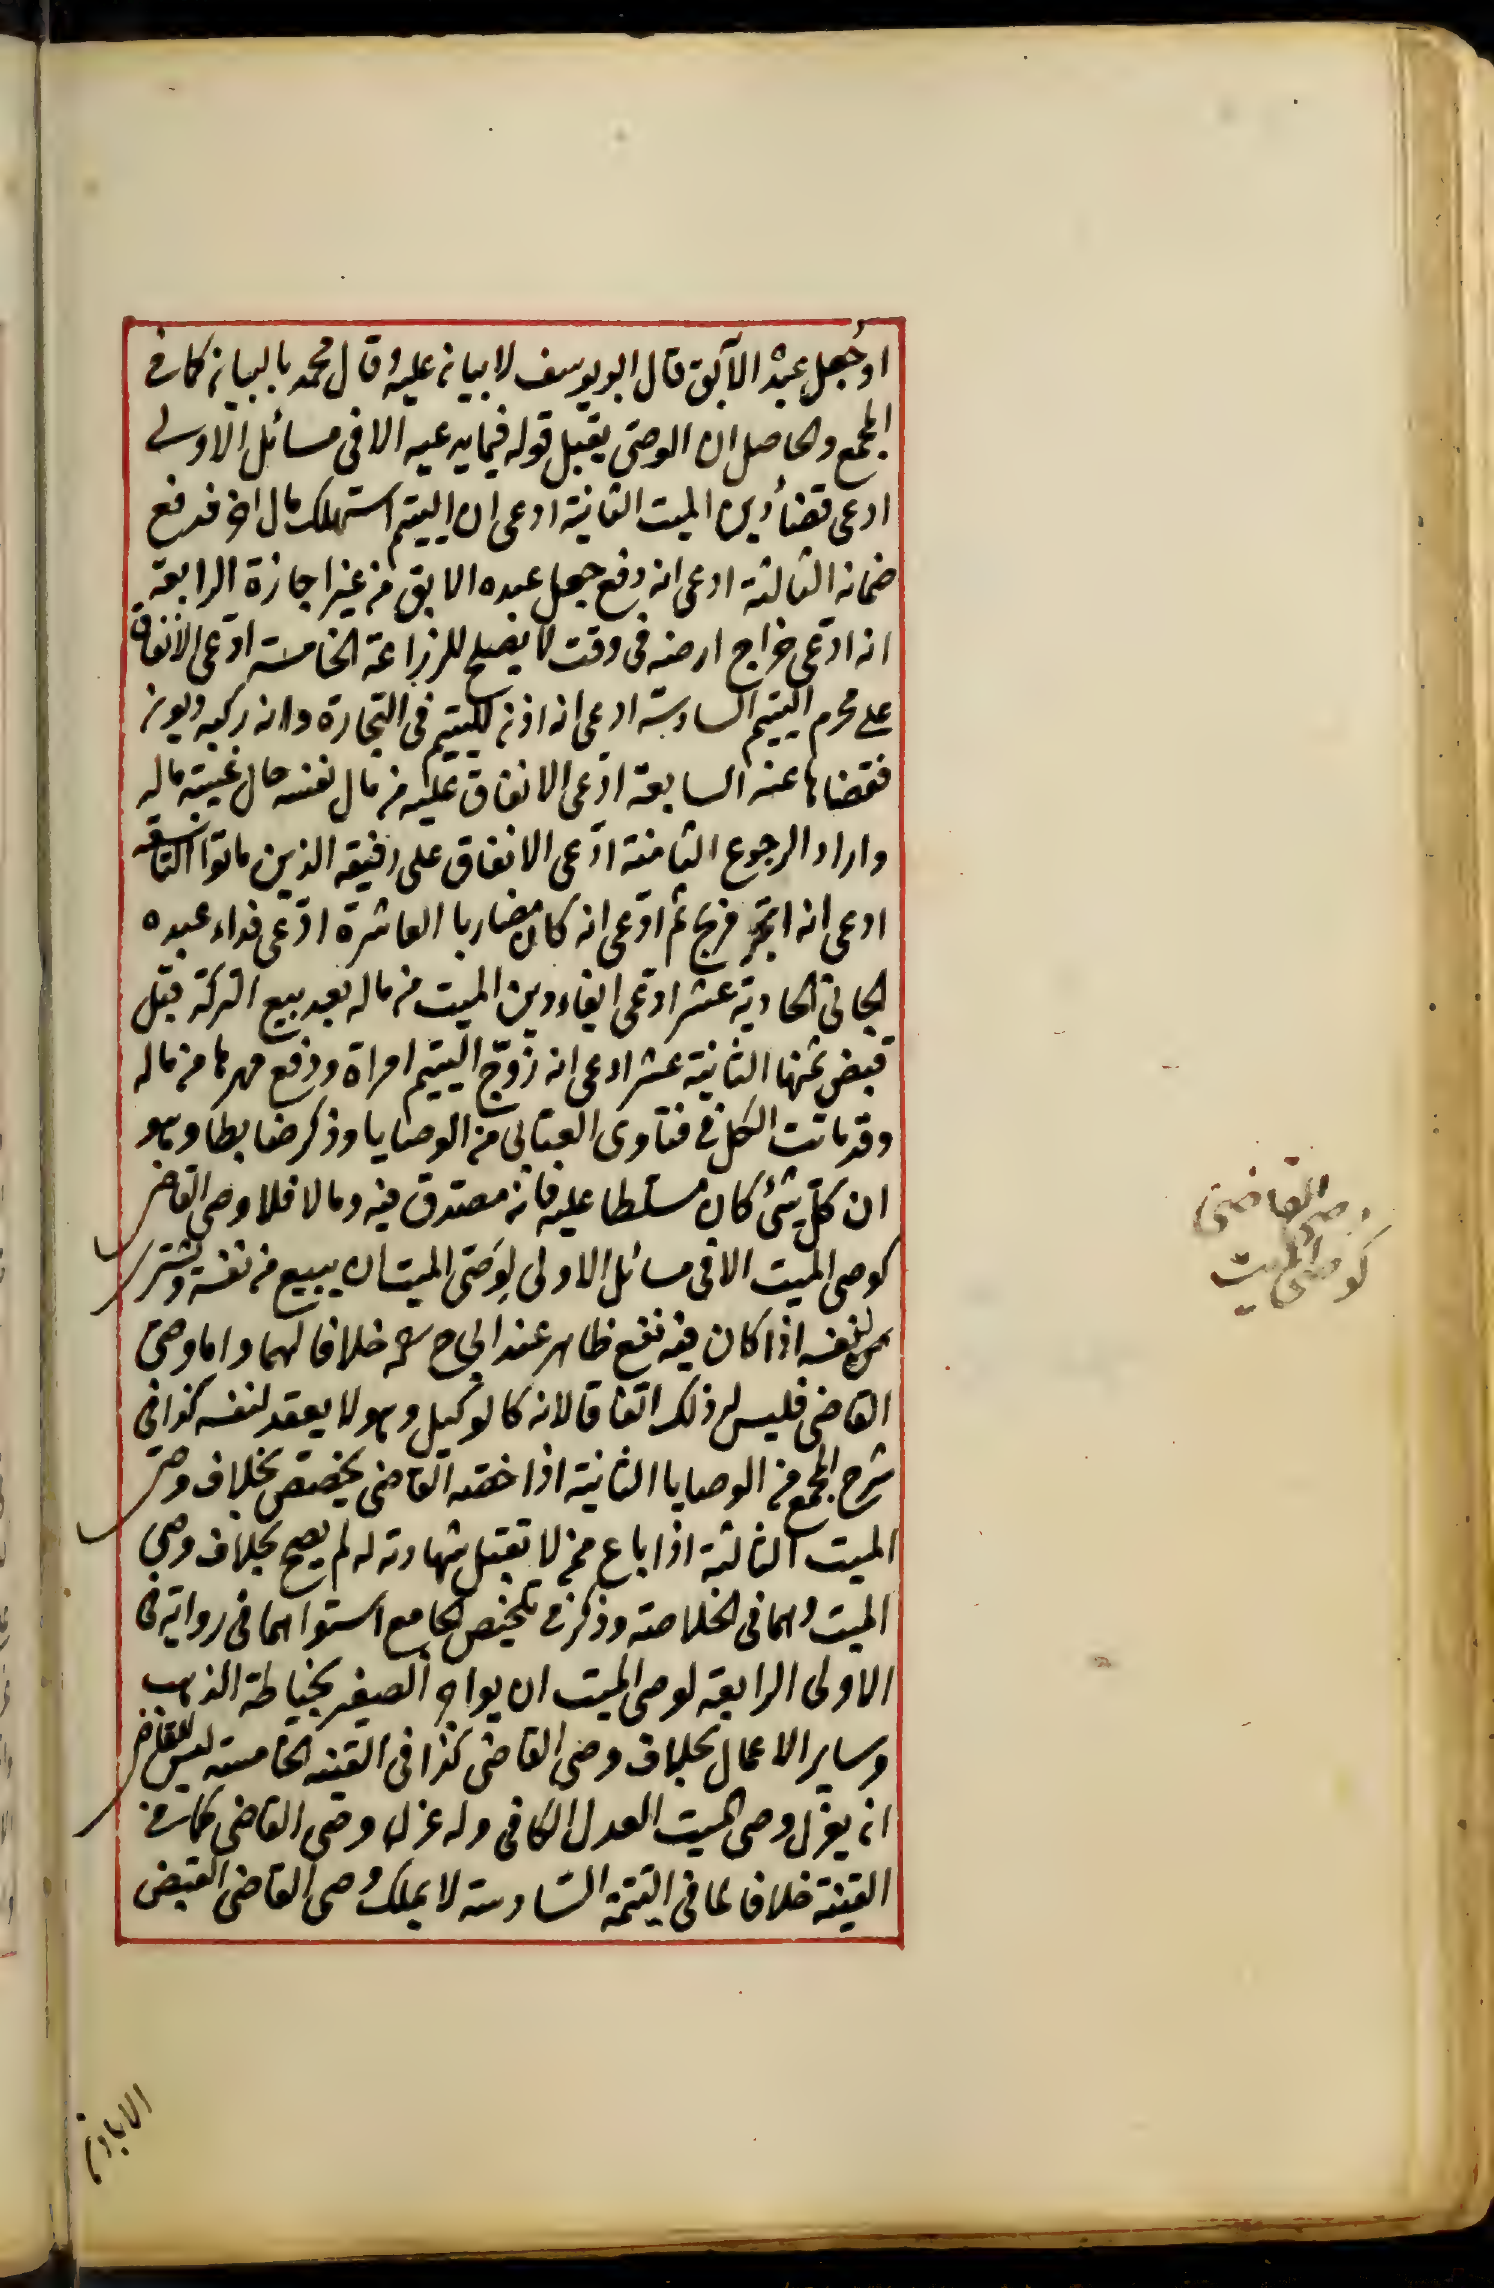 او جعل عبده الآبق قال ابو يوسف لا بيان عليه وقال محمد بالبيان كما في
المجمع والحاصل ان الوصي يقبل قوله فيما يدعيه الا في مسائل الاولى
ادعى قضاء دين الميت الثانية ادعى ان اليتيم استهلك مال اخر فدفع
ضمانه الثالثة ادعى انه دفع جعل عبده الابق من غير اجازة الرابعة
انه ادعى خراج ارضه في وقت لا يصلح للزراعة الخامسة ادعى الانفاق
على محرم اليتيم السادسة ادعى انه اذن لليتيم في التجارة وانه ركبه ديون
فقضاها عنه السابعة ادعى الانفاق عليه من مال نفسه حال غيبة ماله
واراد الرجوع الثامنة ادعى الانفاق على رقيقه الذين ماتوا التاسعة
ادعى انه اتجر فربح ثم ادعى انه كان مضاربا العاشرة ادعى فداء عبده
الجاني الحادية عشر ادعى ايفاء دين الميت من ماله بعد بيع التركة قبل
قبض ثمنها الثانية عشر ادعى انه زوج اليتيم امراة ودفع مهرها من ماله
وقد ماتت الكل في فتاوى العتابي من الوصايا وذكر ضابطا وهو
ان كل شئ كان مسلطا عليه فانه مصدق فيه ومالا فلا وصي القاضي
كوصي الميت الا في مسائل الاولى لوصي الميت ان يبيع من نفسه ويشتري
لنفسه اذا كان فيه نفع ظاهر عند ابي ح خلافا لهما واما وصي
القاضي فليس له ذلك اتفاقا لانه كالوكيل وهو لا يعقد لنفسه كذا في
شرح المجمع من الوصايا الثانية اذا خصه القاضي يختص بخلاف وصي
الميت الثالثة اذا باع ممن لا تقبل شهادته له لم يصح بخلاف وصي
الميت وهما في الخلاصة وذكر في تلخيص الجامع استواهما في رواية في
الاولى الرابعة لوصي الميت ان يواجر الصغير بخياطة الذهب
وساير الاعمال بخلاف وصي القاضي كذا في القنيه الخامسة ليس للقاضي
ان يعزل وصي الميت العدل الكافي وله عزل وصي القاضي كما في
القنية خلافا لما في اليتيمة السادسة لا يملك وصي القاضي القبض
وصي القاضي
كوصي الميت
الا باذن